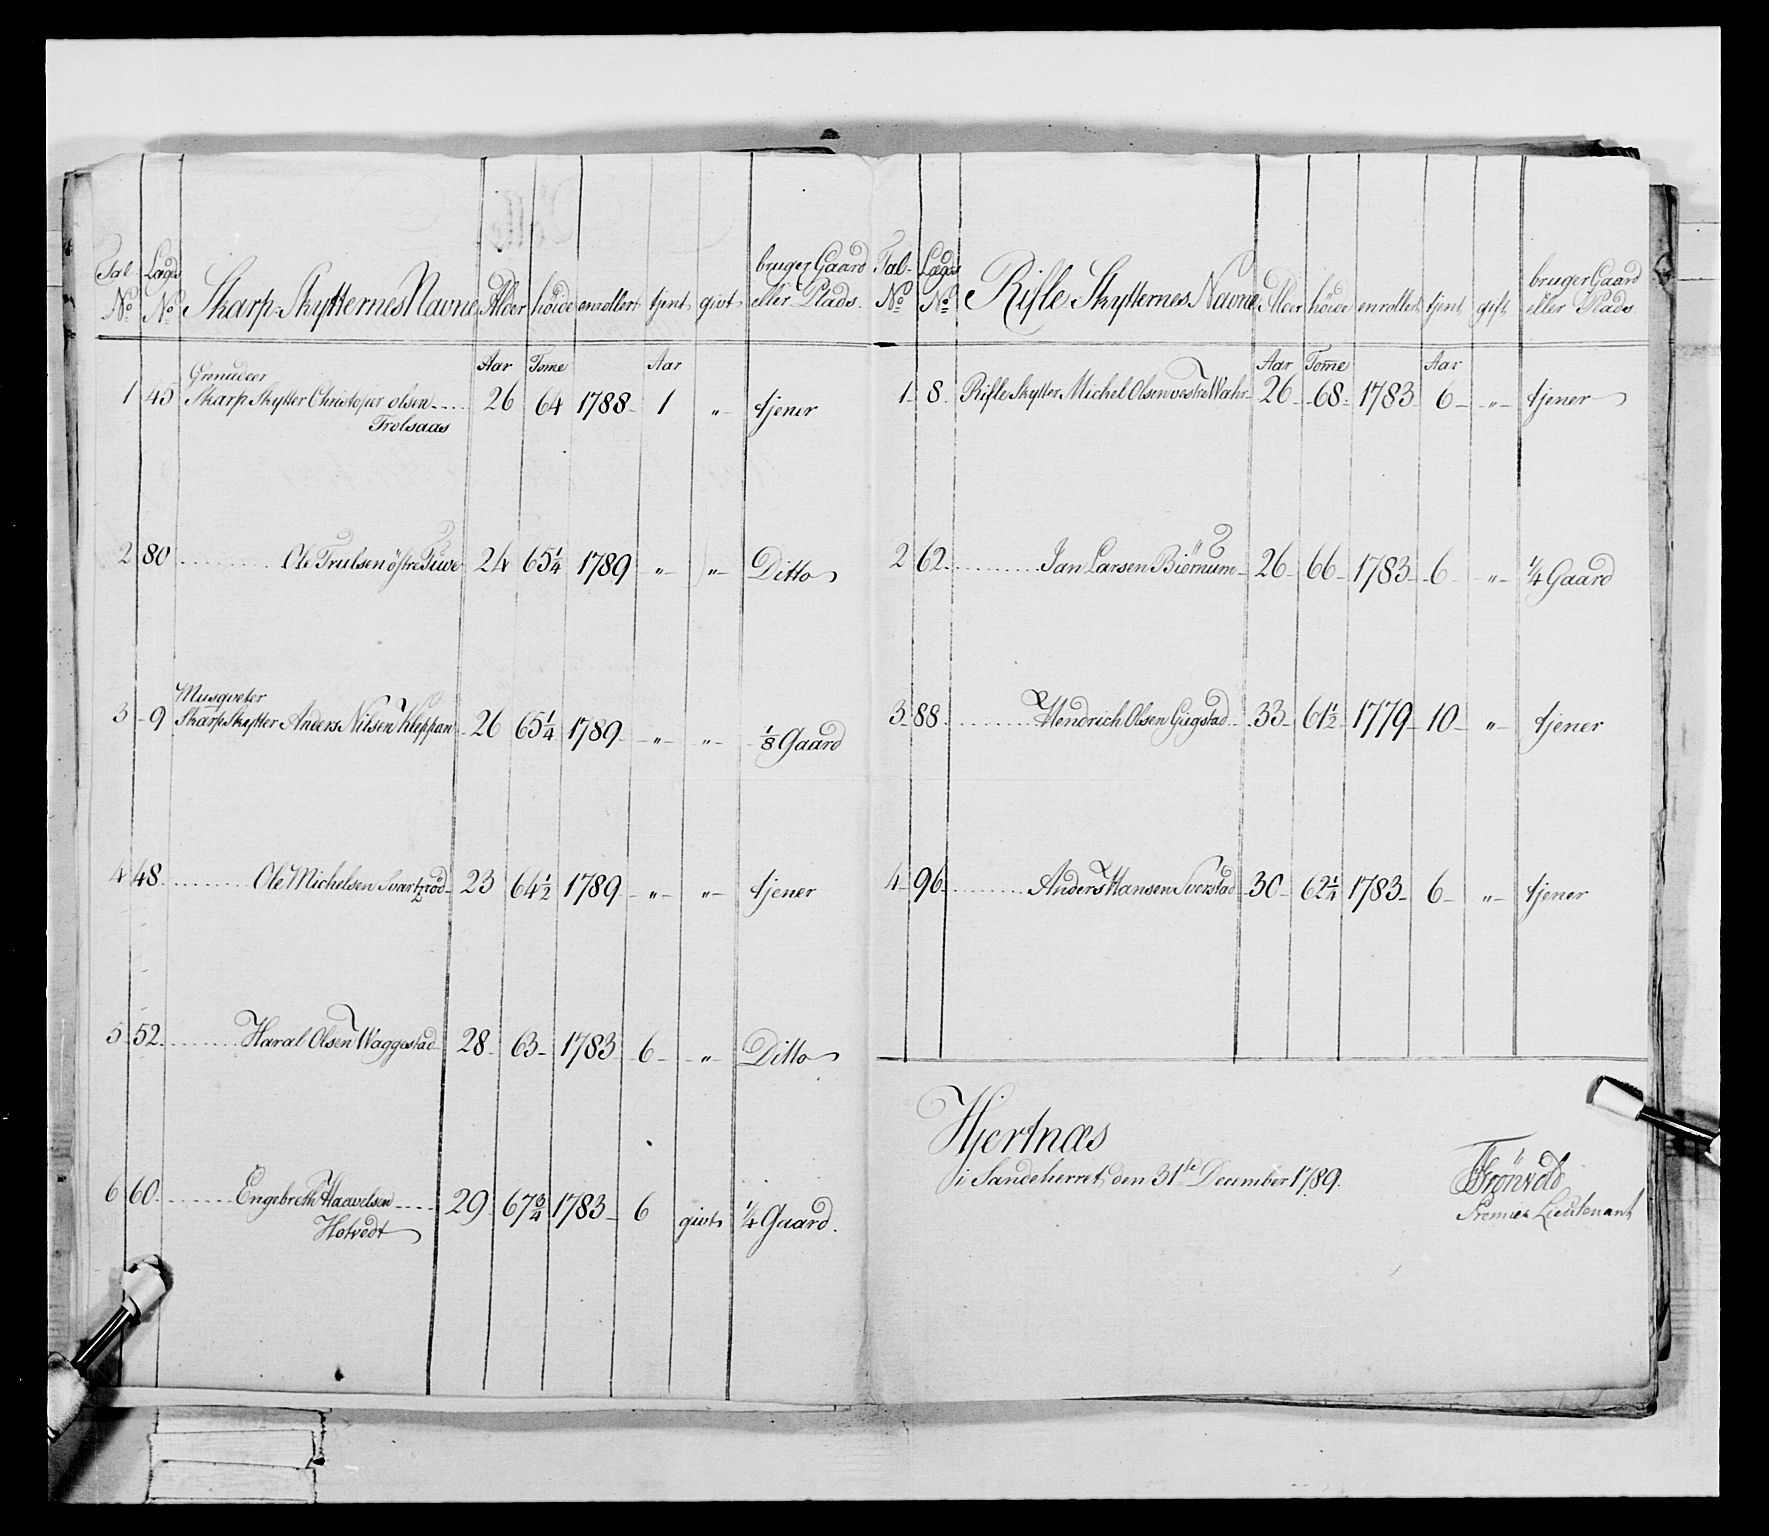 Tal No | Lægds No | Skarp-Skytternes Navne | Alder | höide | enrollert | tjent | givt | bruger Gaard eller Plads.
Aar | Tome | Aar
Grenadeer
1 | 45 | Skarp Skytter Christoper olsen | 26 | 64 | 1788 | 1 | " | tjener
Trolsaas
2 | 80 | Ole Trulsen östre Tuve | 24 | 65 1/4 | 1789 | " | " | Ditto
Musqveter
3 | 9 | Skarp Skytter Anders Nilsen Kleppan | 26 | 65 1/4 | 1789 | " | " | 1/8 Gaard
4 | 48 | Ole Michelsen Svartzröd | 23 | 64 1/2 | 1789 | " | " | tjener
5 | 52 | Haral Olsen Waggestad | 28 | 63 | 1783 | 6 | " | Ditto
6 | 60 | Engebreth Haavelsen | 29 | 67 3/4 | 1783 | 6 | givt | 1/4 Gaard.
Hotvedt
Tal- No | Lægds No | Rifle Skytternes Navne | Alder | höide | enrollert | tjent | gift | bruger Gaard eller Plads.
Aar | Tome | Aar
1 | 8 | Rifle Skytter Michel Olsen vestre Wahr | 26 | 68 | 1783 | 6 | " | tjener
2 | 62 | Jan Larsen Biörnum | 26 | 66 | 1783 | 6 | " | 1/4 Gaard
3 | 88 | Hendrich Olsen Giegstad | 33 | 61 1/2 | 1779 | 10 | " | tjener
4 | 96 | Anders Hansen Sverstad | 30 | 62 1/4 | 1783 | 6 | " | tjener
Hjertnæs
i Sandeherret, den 31te December 1789.
Grönvold
Premier Lieutenant